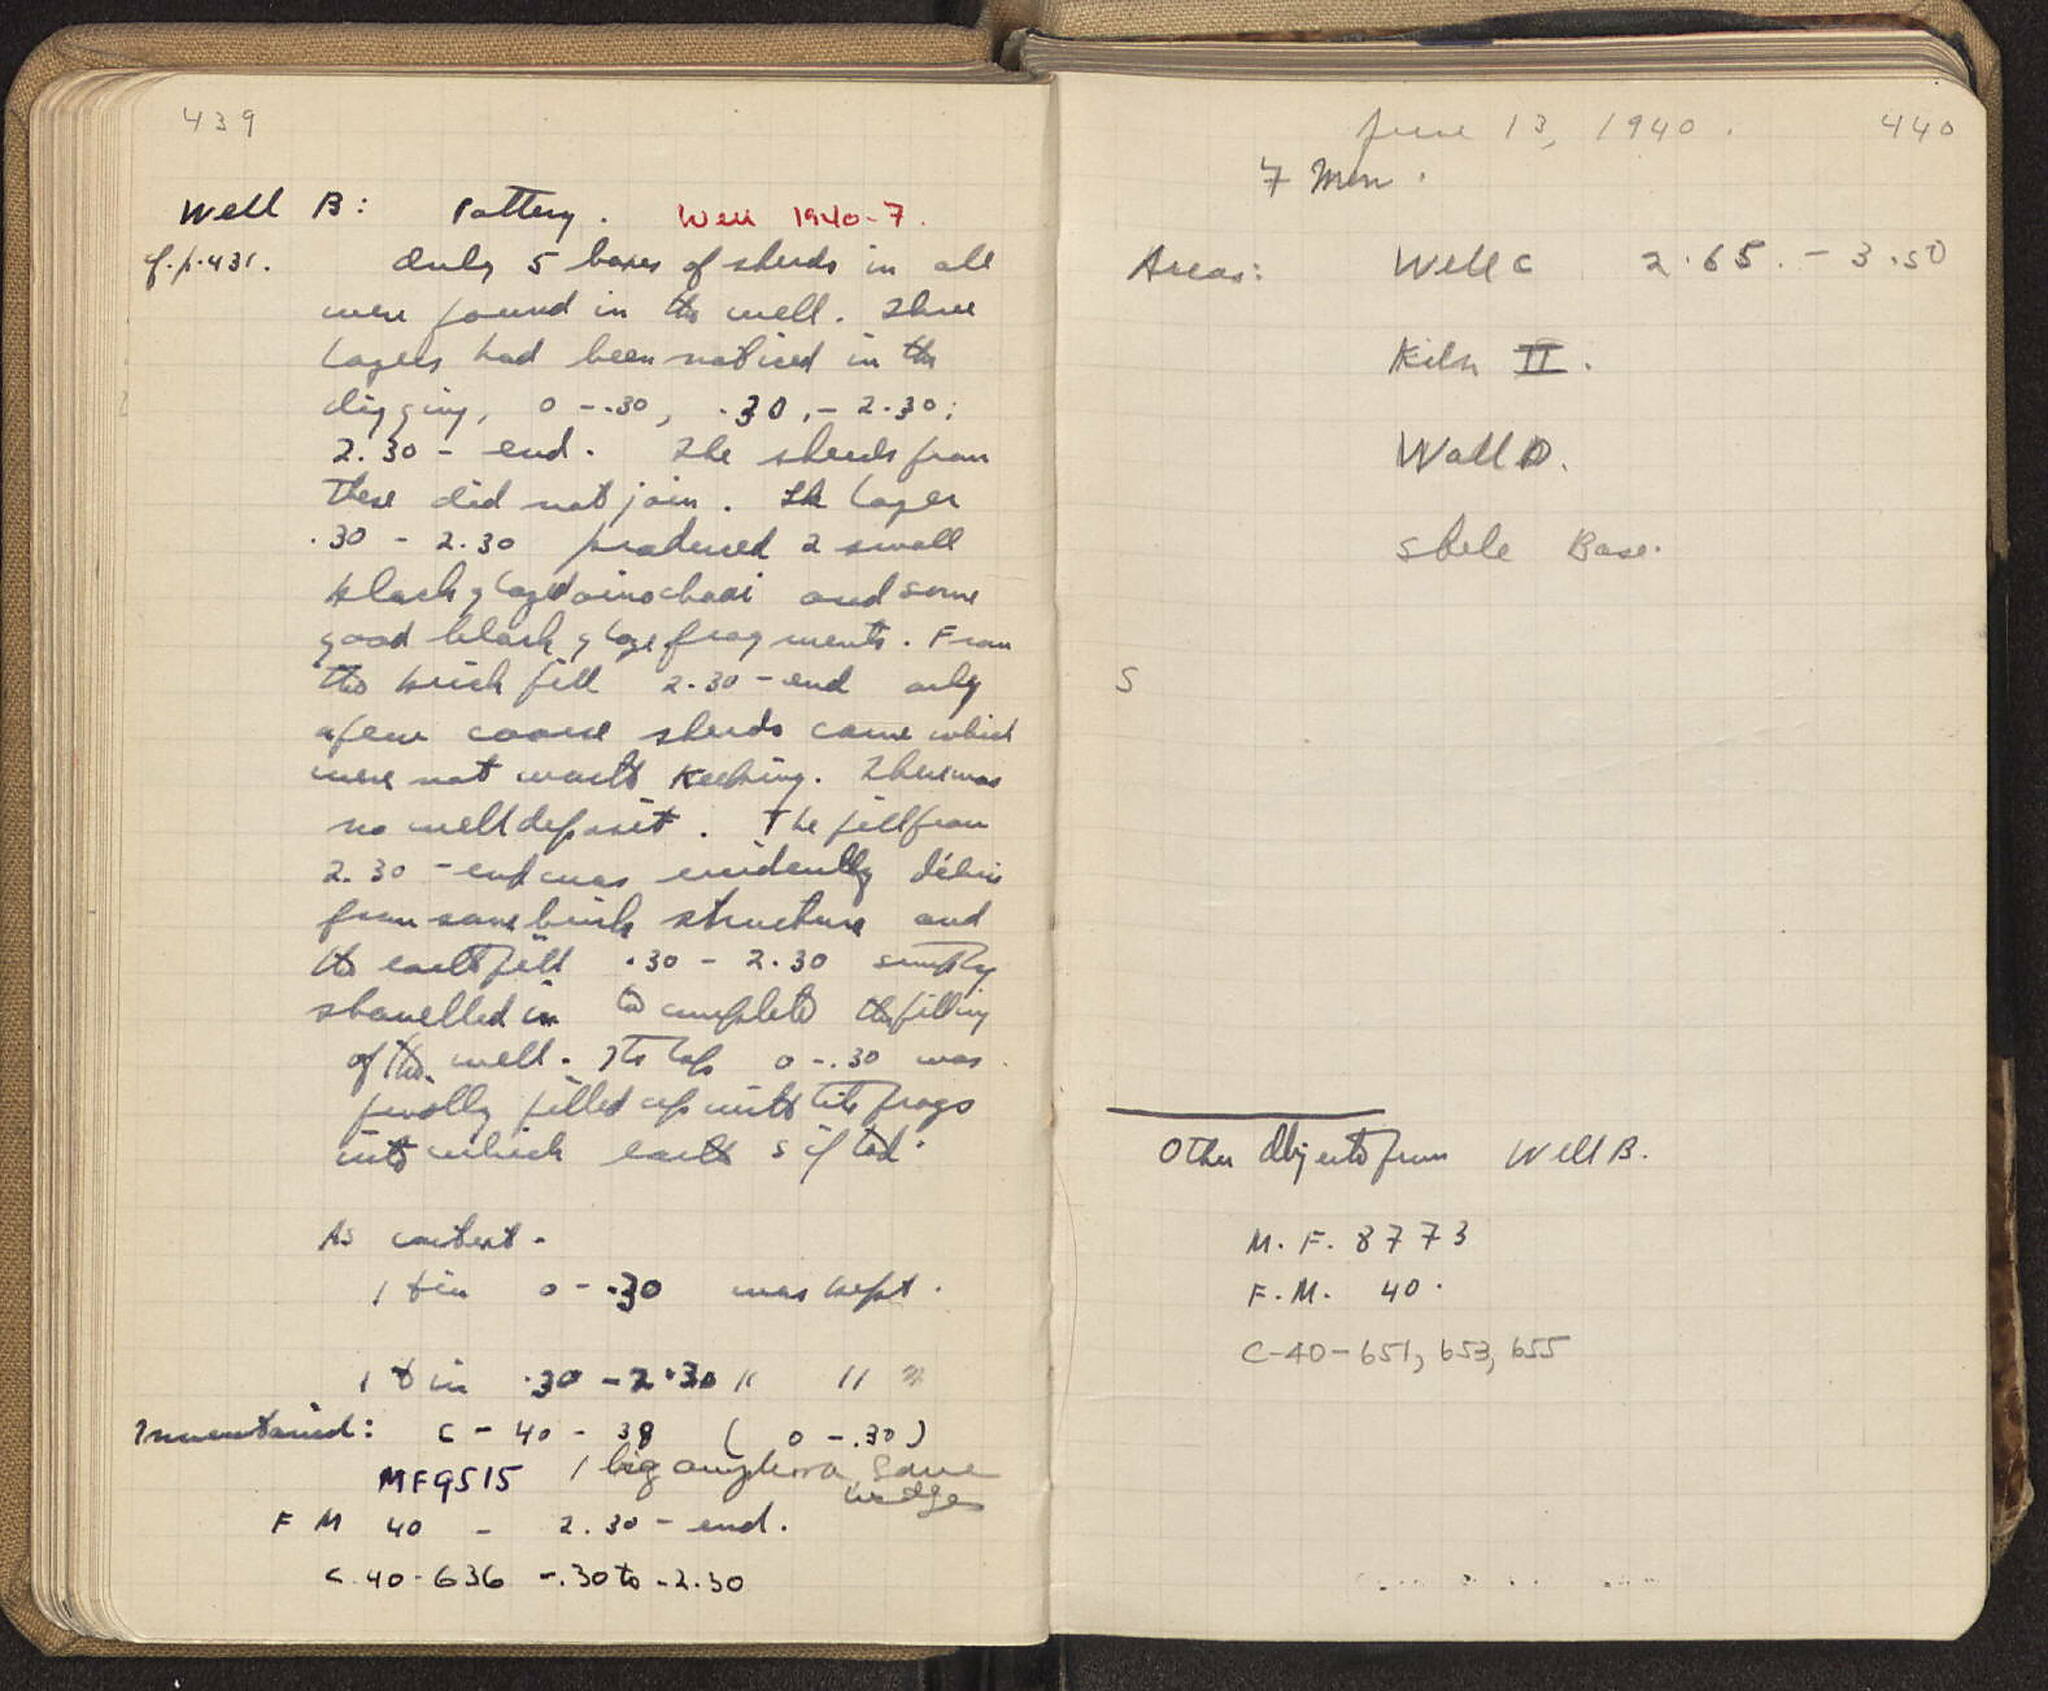 439
Well B: Pottery. Well 1940-7.
cf. p. 431. Only 5 boxes of sherds in all
were found in the well. Three
layers had been noticed in the
digging, 0 - .30, .30, - 2.30;
2.30 - end. The sherds from
these did not join. The layer
.30 - 2.30 produced 2 small
black glazed oinochoai and some
good black glaze fragments. From
the brick fill 2.30 - end only
a few coarse sherds came which
were not worth keeping. There was
no well deposit. The fill from
2.30 - end was evidently débris
from some brick structure and
the earth fill .30 - 2.30 simply
shovelled in to complete the filling
of the well. Its top 0 - .30 was
finally filled up with tile frags
into which earth sifted.
As context -
1 tin 0 - .30 was kept.
1 tin .30 - 2.30 " " "
Inventoried: C - 40 - 38 ( 0 - .30)
MF9515 1 big amphora
F M 40 - 2.30 - end.
C. 40 - 636 -.30 to -2.30
June 13, 1940. 440
7 Men.
Areas: Well C 2.65. - 3.50
Kiln II.
Wall D.
Stele Base.
S
Other Objects from Well B.
M. F. 8773
F. M. 40.
C-40-651, 653, 655